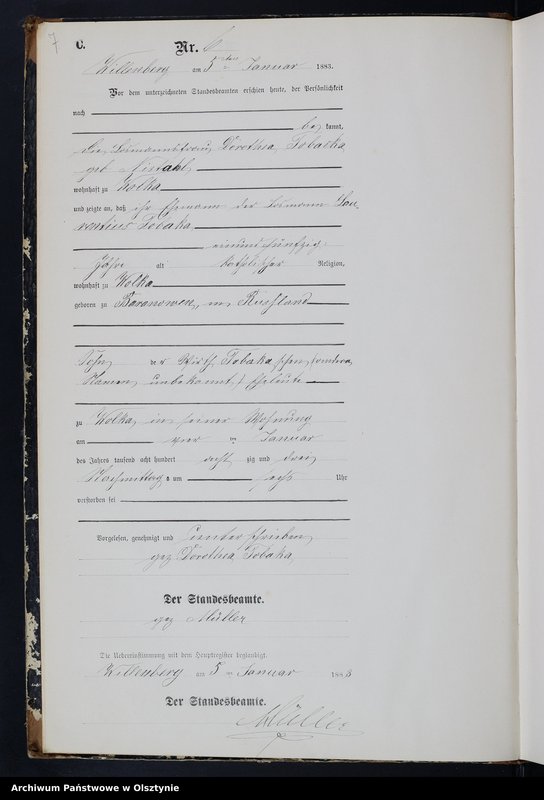 7
C.
Nr. 6
Willenberg am 5ten Januar 1883.
Vor dem unterzeichneten Standesbeamten erschien heute, der Persönlichkeit
nach
be kannt,
die Losmannsfrau Dorothea Tobaka
geb
wohnhaft zu Kolka
und zeigte an, daß ihr Ehemann der Losmann Lau-
rentius Tobaka
einundfünfzig
Jahre alt katholischer Religion,
wohnhaft zu Kolka
geboren zu Baranowen, in Russland
Sohn der Wirth Tobaka schen (andere
Namen unbekannt) Eheleute
zu Kolka, in seiner Wohnung
am vier ten Januar
des Jahres tausend acht hundert acht zig und drei
Nachmittag s um sechs Uhr
verstorben sei
Vorgelesen, genehmigt und unterschrieben
gez Dorothea Tobaka
Der Standesbeamte.
gez Müller
Die Uebereinstimmung mit dem Hauptregister beglaubigt.
Willenberg am 5 ten Januar 1883
Der Standesbeamte.
Müller
Archiwum Państwowe w Olsztynie